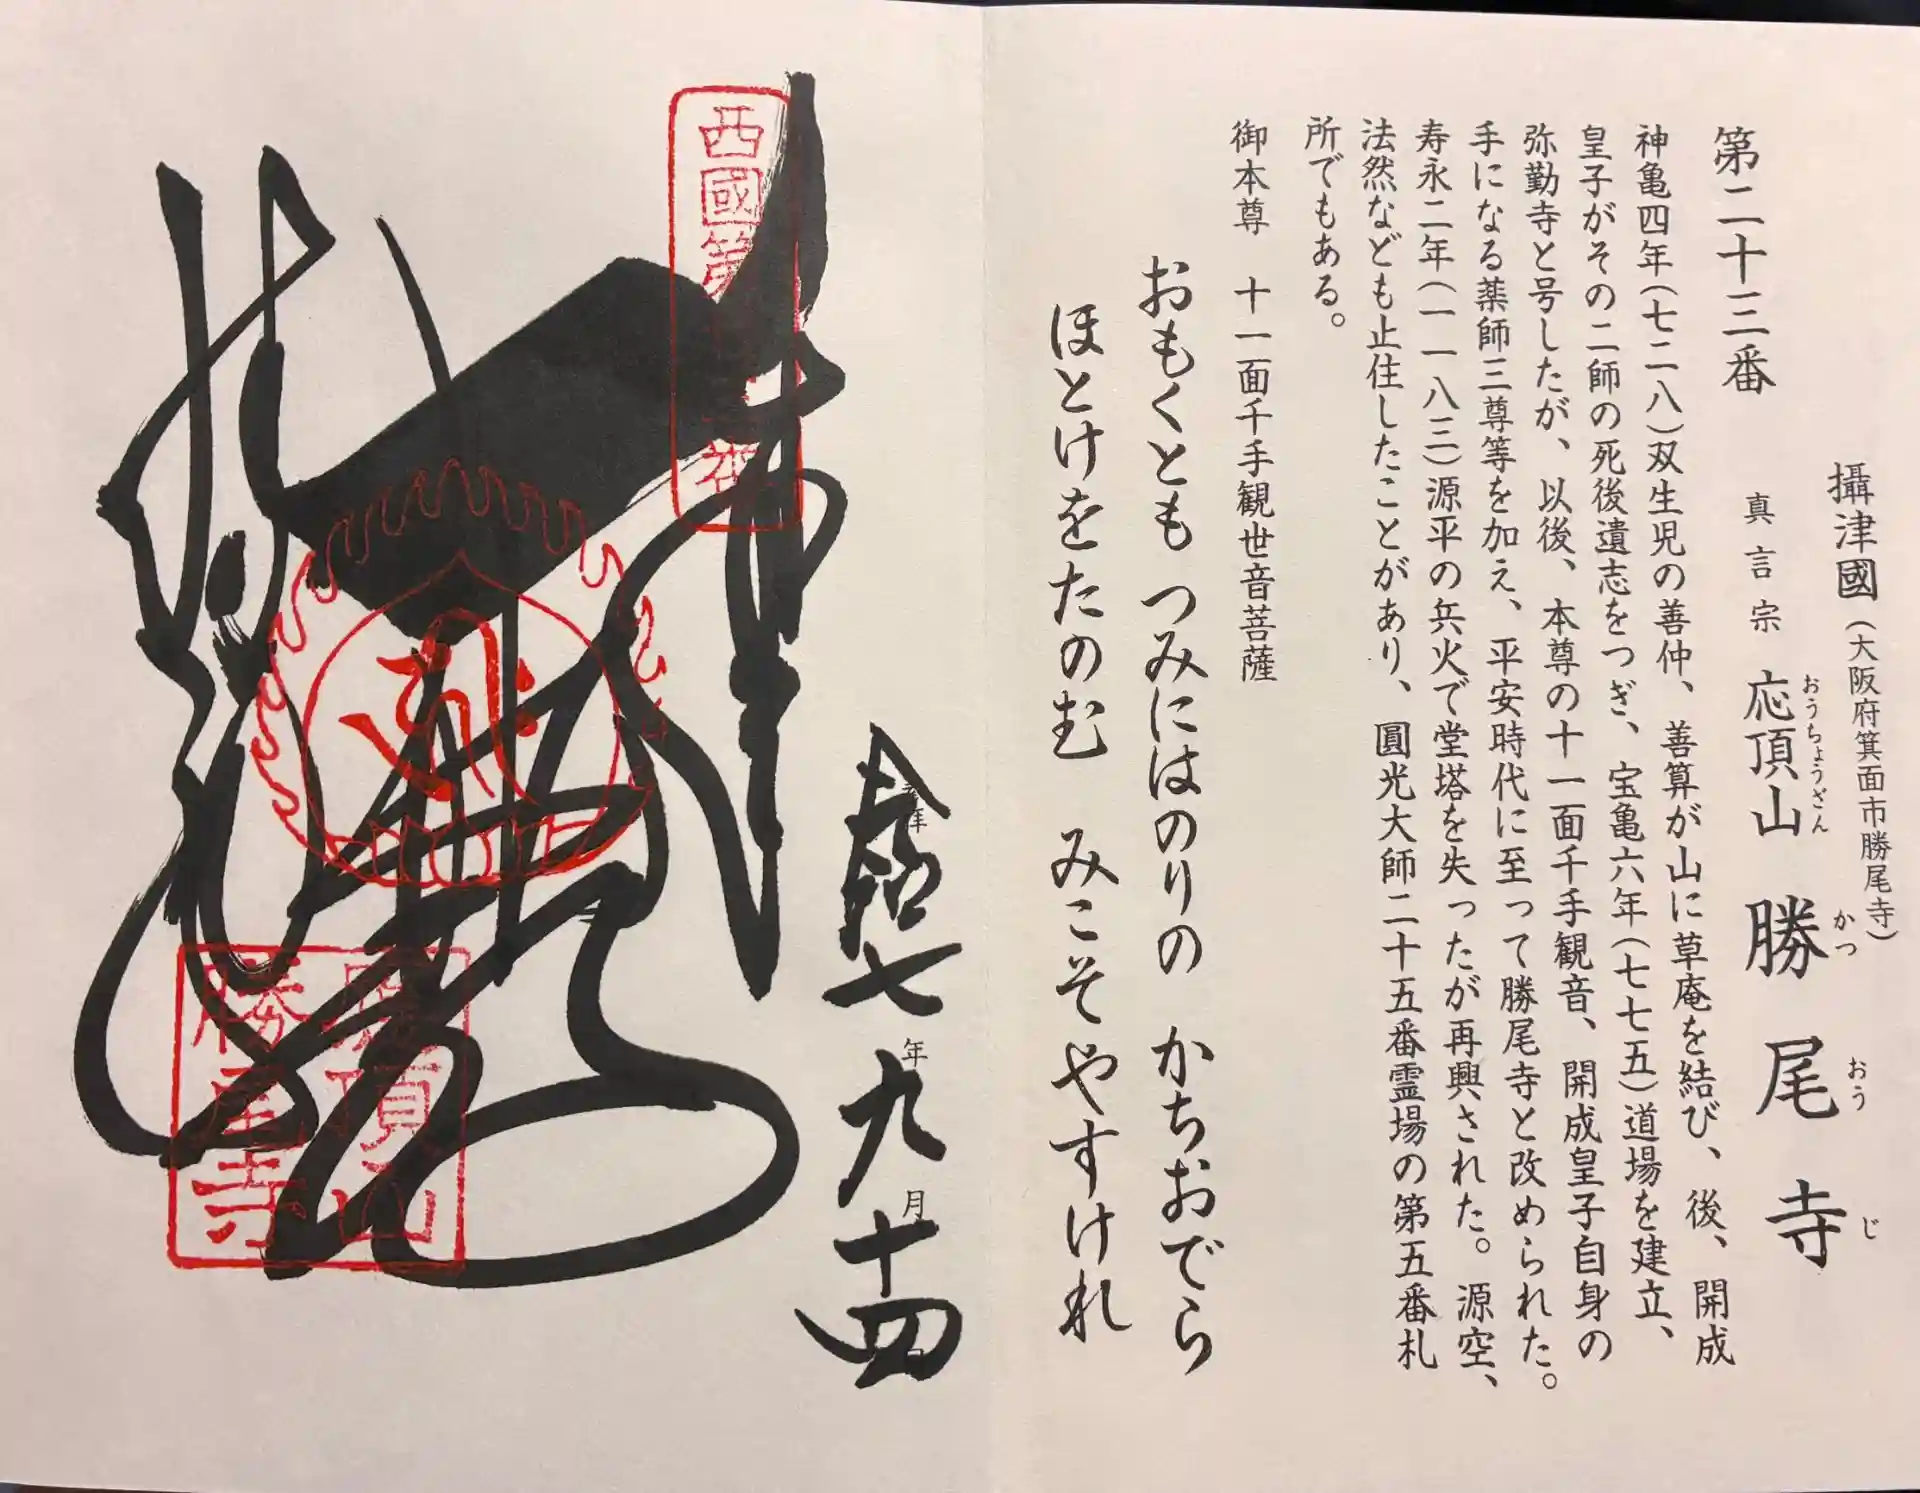 第二十三番
攝津國(大阪府箕面市勝尾寺)
真言宗 応頂山 勝尾寺
おうちょうざん かつ おう じ
神亀四年(七二八)双生児の善仲、善算が山に草庵を結び、後、開成
皇子がその二師の死後遺志をつぎ、宝亀六年(七七五)道場を建立、
弥勤寺と号したが、以後、本尊の十一面千手観音、開成皇子自身の
手になる薬師三尊等を加え、平安時代に至って勝尾寺と改められた。
寿永二年(一一八三)源平の兵火で堂塔を失ったが再興された。源空、
法然なども止住したことがあり、圓光大師二十五番霊場の第五番札
所でもある。
御本尊 十一面千手観世音菩薩
おもくとも つみにはのりの かちおでら
ほとけをたのむ みこそやすけれ
奉拝
七年九月十四日
西國第
應頂山
勝尾寺